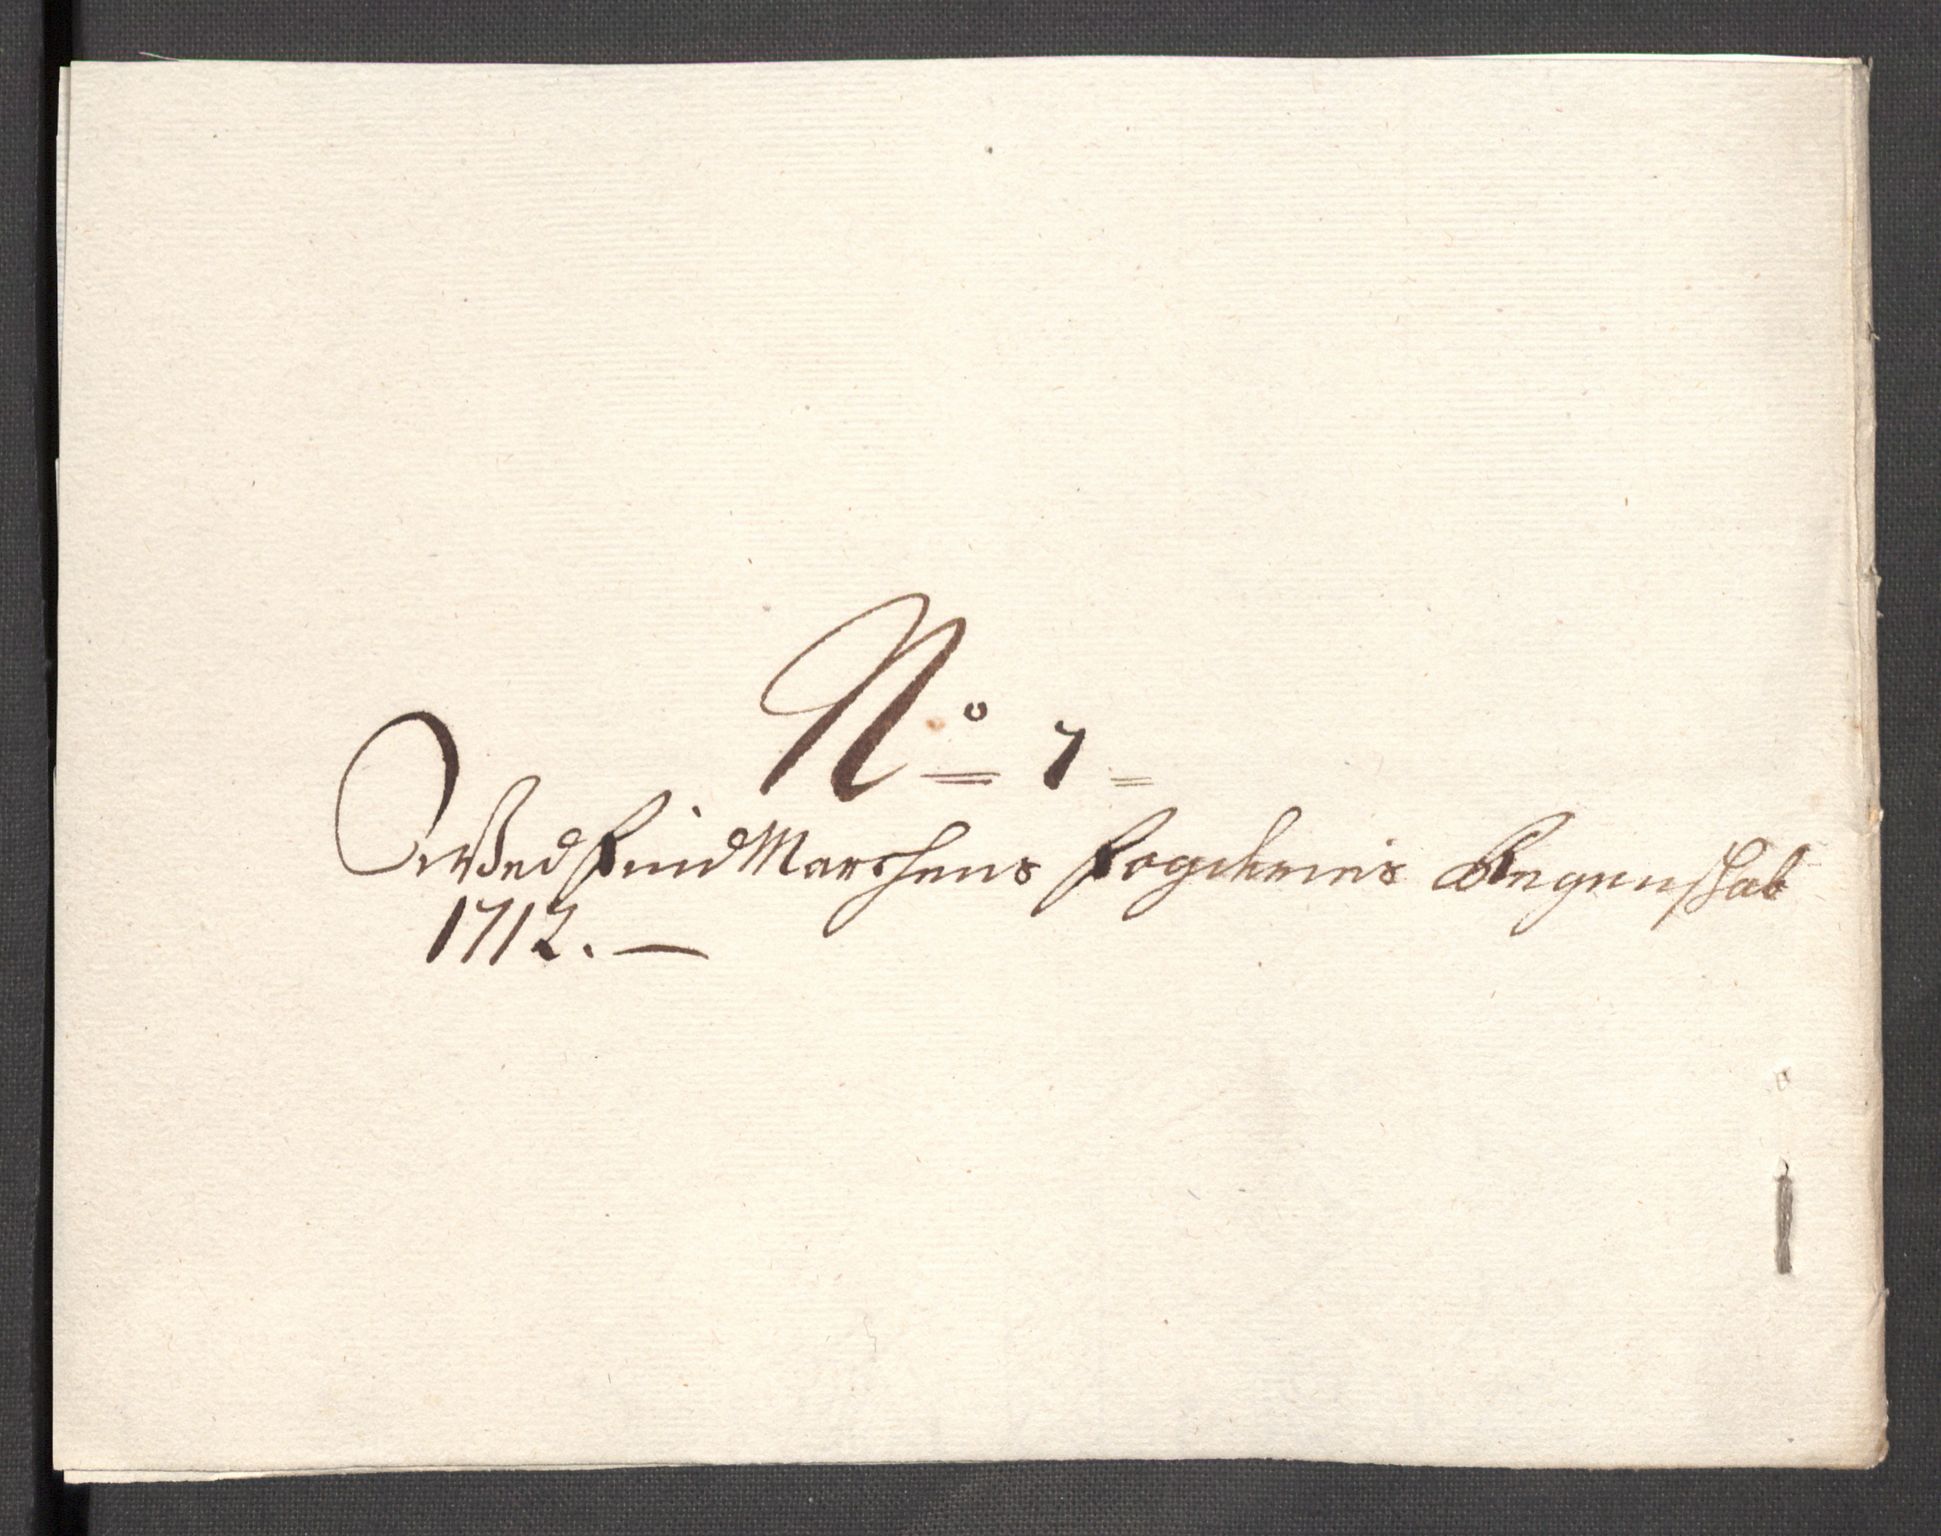 No 7
Ved Find Marchens Fogderies Regenschab
1712.